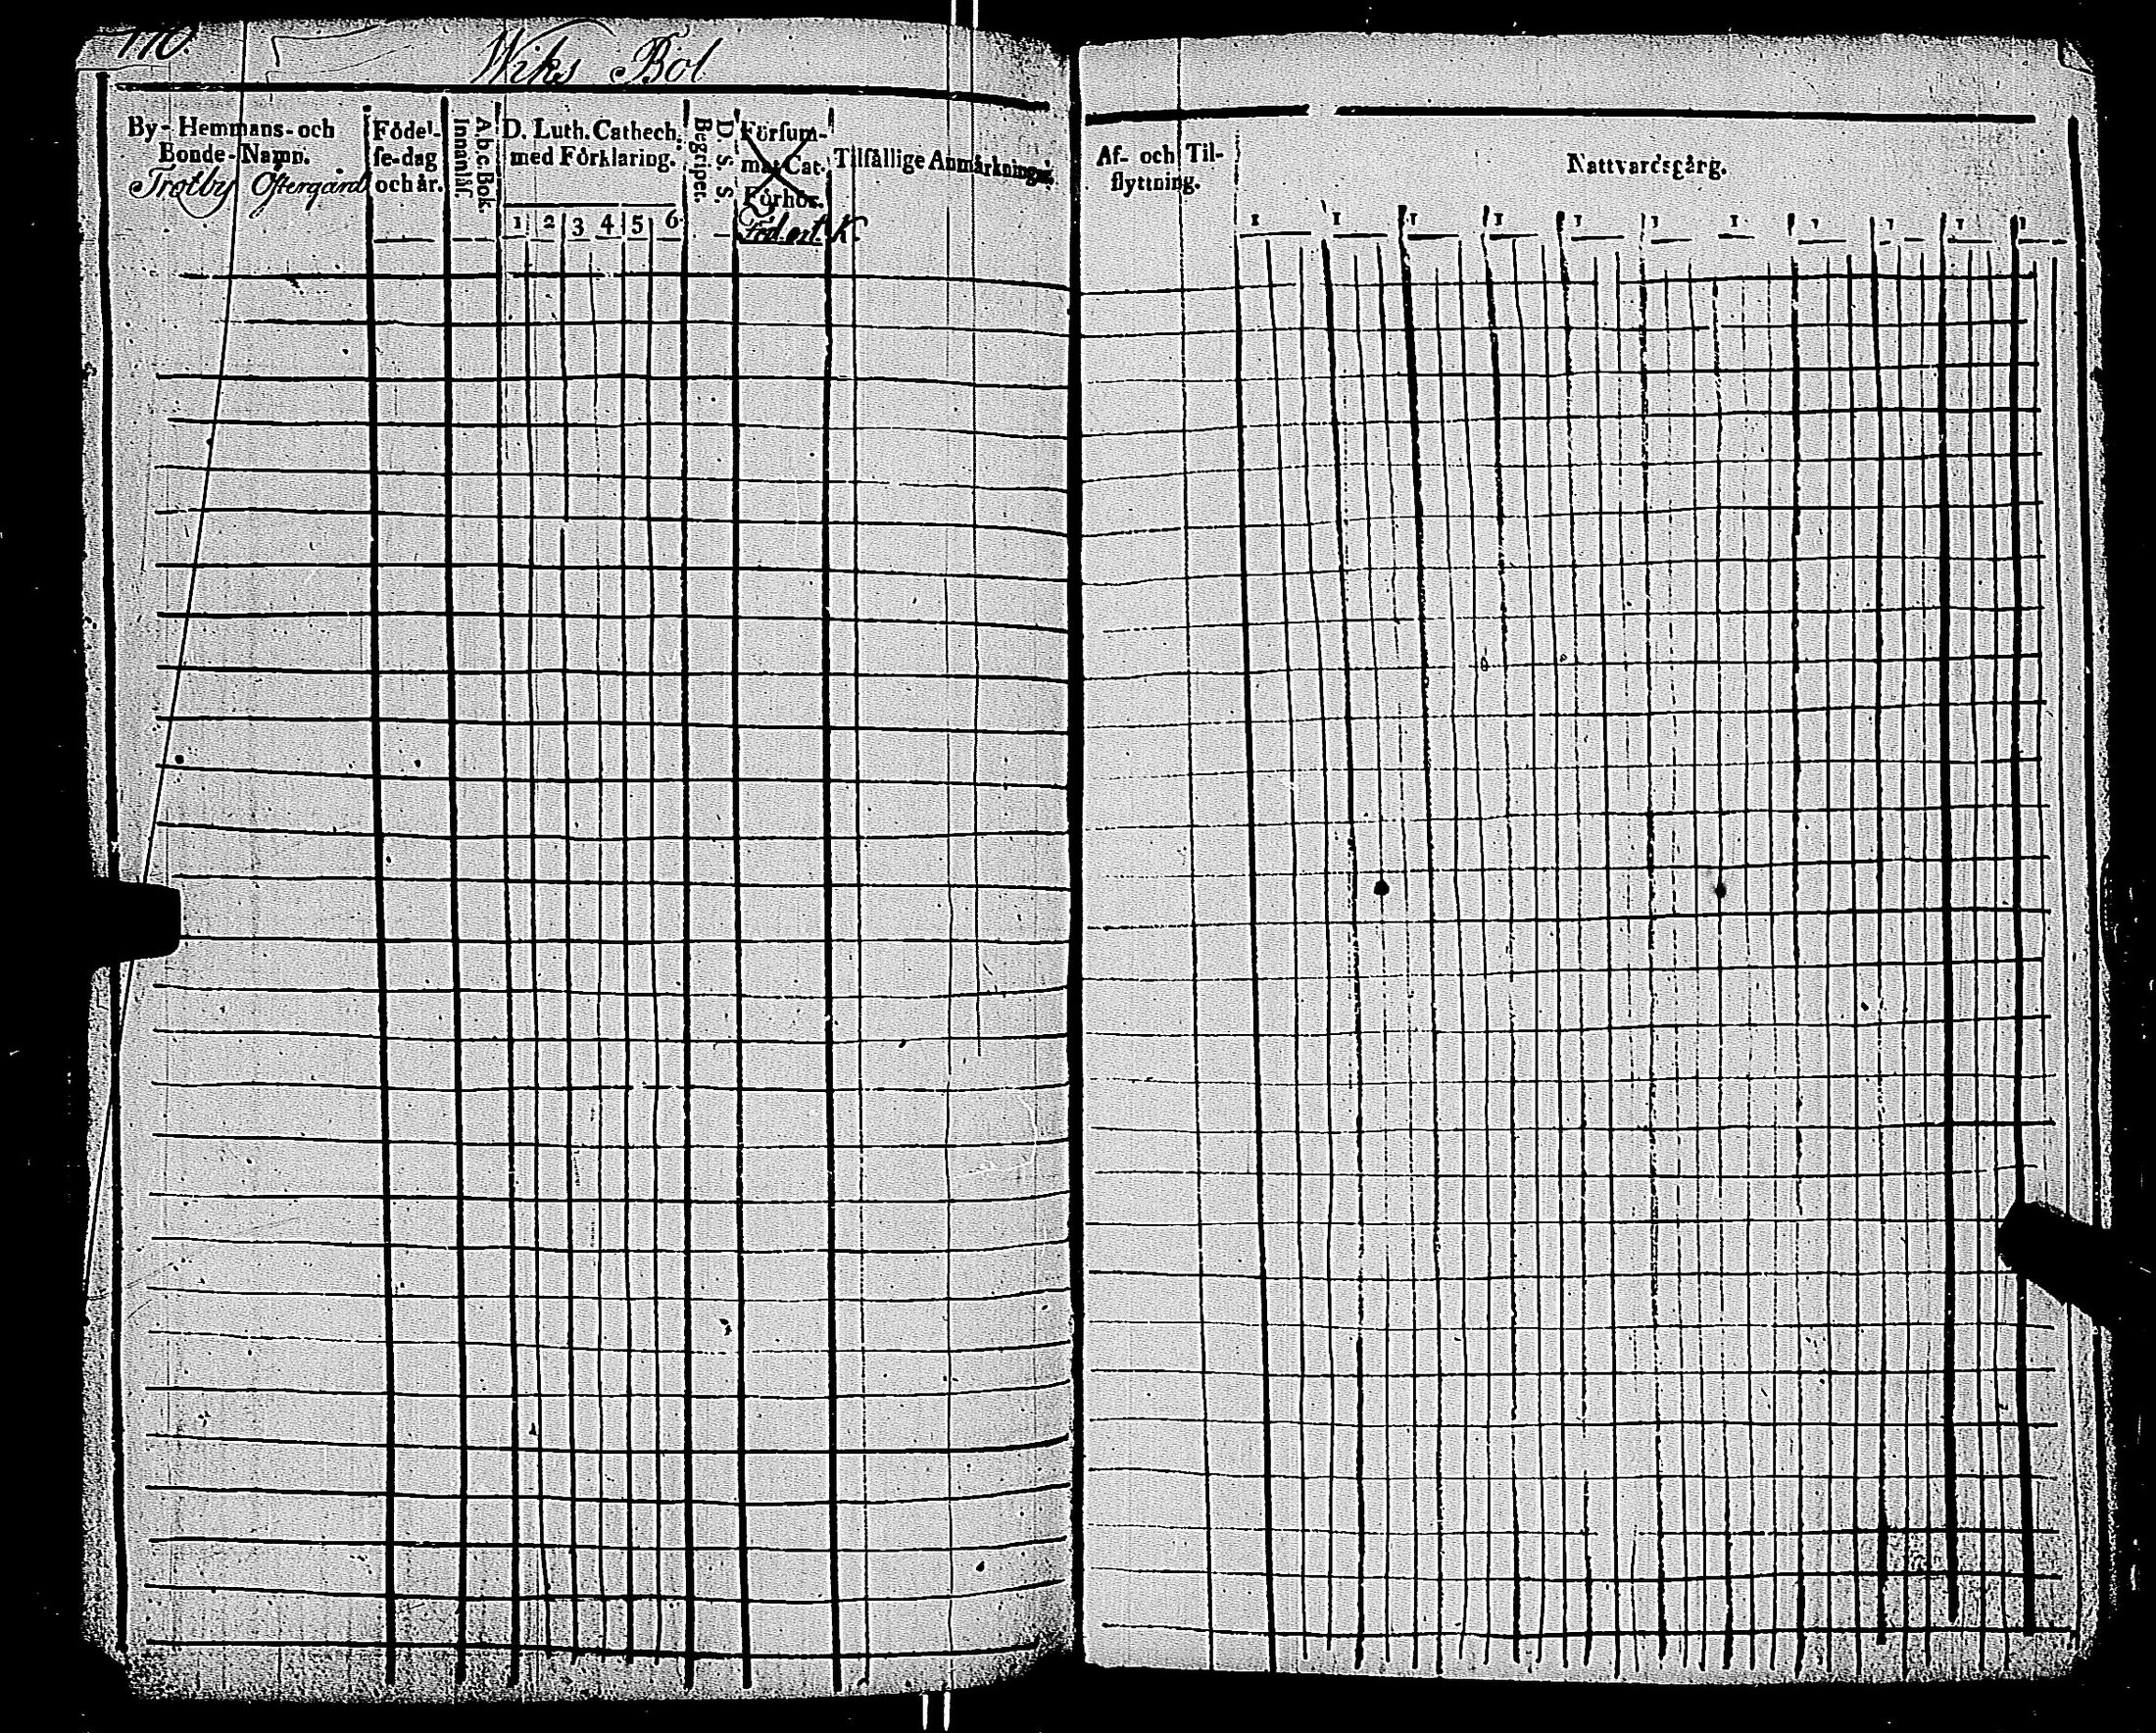 110.
Wiks Böl
By- Hemmans- och
Bonde-Namn.
Trotby Östergård
Födel-
se-dag
och år.
A.b.c Bok.
Innanläs.
D. Luth. Cathech.
med Förklaring.
1 2 3 4 5 6
D. S. S.
Begripet.
Försum-
mat Cat-
Förhör.
Föd. ort. K
Tilfällige Anmärkningar
Af- och Til-
flyttning.
Nattvardsgång.
1 1 1 1 1 1 1 1 1 1 1